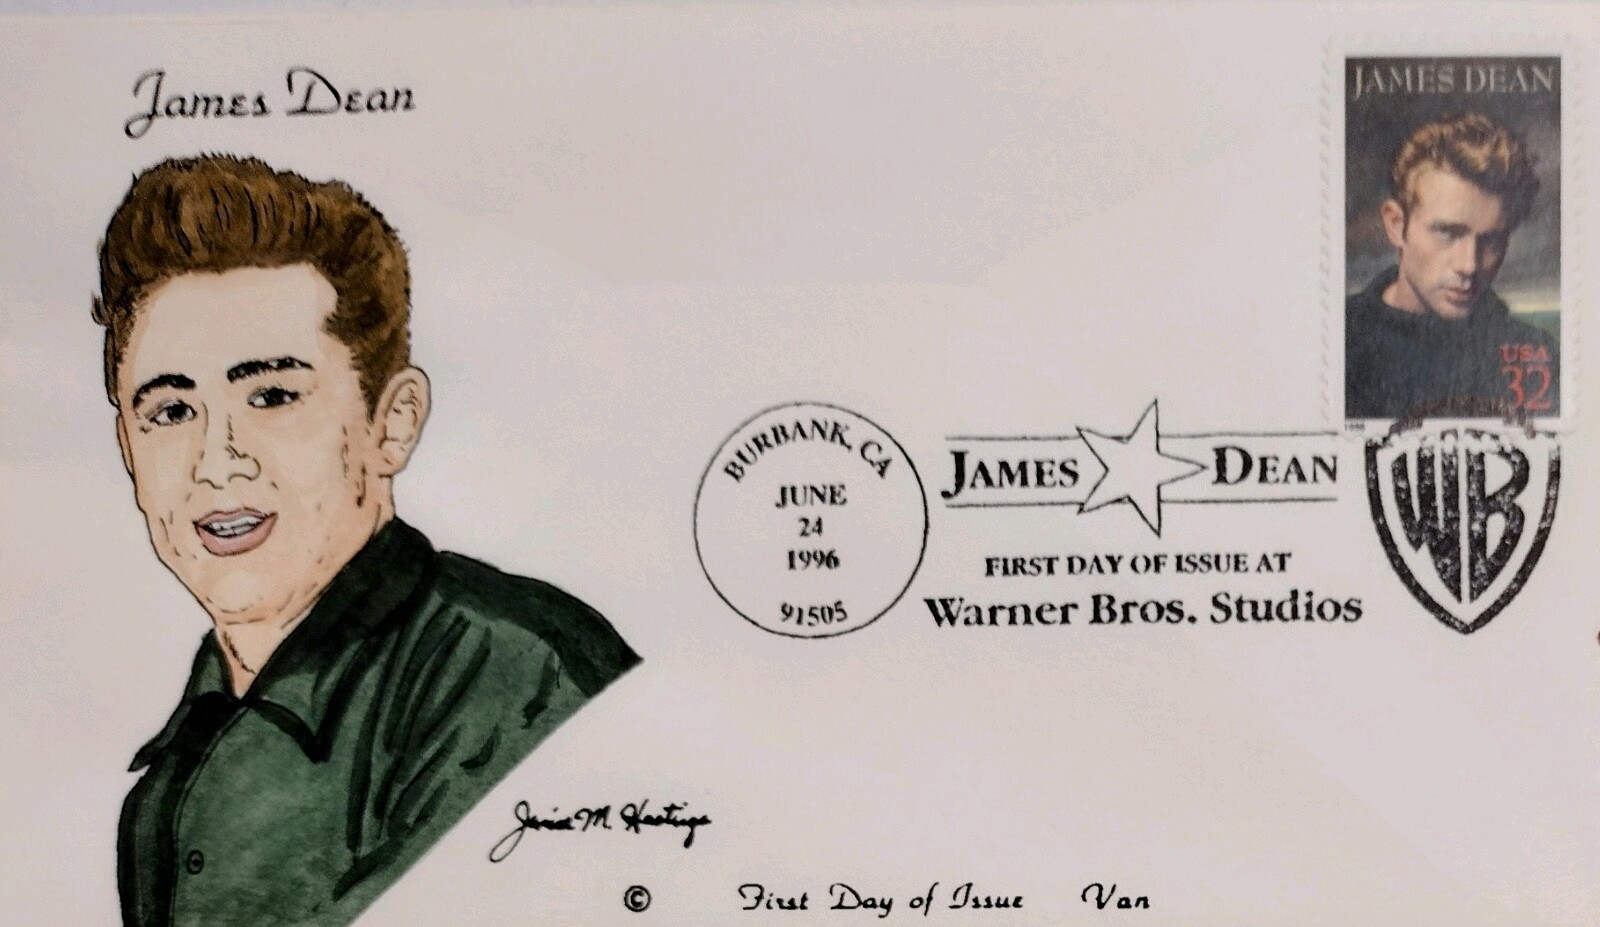 James Dean
JAMES DEAN
USA
32
BURBANK, CA
JUNE
24
1996
91505
JAMES DEAN
FIRST DAY OF ISSUE AT
Warner Bros. Studios
WB
M. Hastings
© First Day of Issue Van